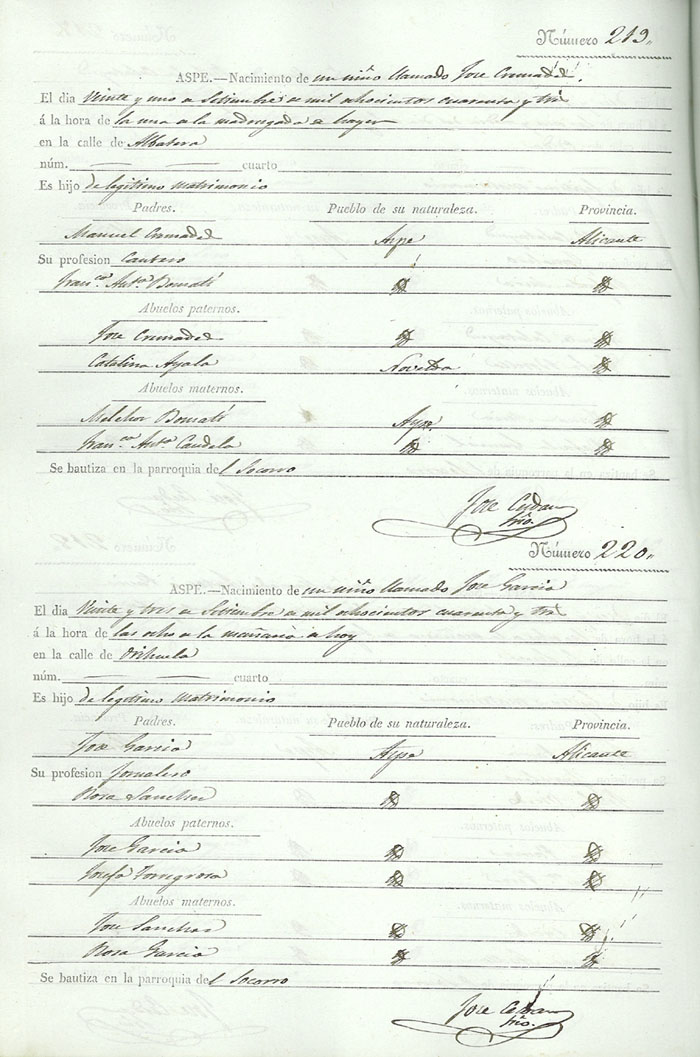 Número 219,,
ASPE.—Nacimiento de un niño llamado Jose Cremadés.
El dia Veinte y uno de Setiembre de mil ochocientos cuarenta y tres
á la hora de la una de la madrugada de hayer
en la calle de Albatera
núm. cuarto
Es hijo de legitimo matrimonio
Padres. Pueblo de su naturaleza. Provincia.
Manuel Cremades Aspe Alicante
Su profesion Cantero
Fran.ca Ant.a Bomati
Abuelos paternos.
Jose Cremades
Catalina Ayala Novelda
Abuelos maternos.
Melchor Bomati Aspe
Fran.ca Ant.a Candela
Se bautiza en la parroquia del Socorro
Jose Cerdan
Srio.
Número 220,,
ASPE.—Nacimiento de un niño llamado Jose Garcia
El dia Veinte y tres de Setiembre de mil ochocientos cuarenta y tres
á la hora de las ocho de la mañana de hoy
en la calle de Orihuela
núm. cuarto
Es hijo de legitimo matrimonio
Padres. Pueblo de su naturaleza. Provincia.
Jose Garcia Aspe Alicante
Su profesion Jornalero
Rosa Sanchez
Abuelos paternos.
Jose Garcia
Josefa Torregrosa
Abuelos maternos.
Jose Sanchez
Rosa Garcia
Se bautiza en la parroquia del Socorro
Jose Cerdan
Srio.